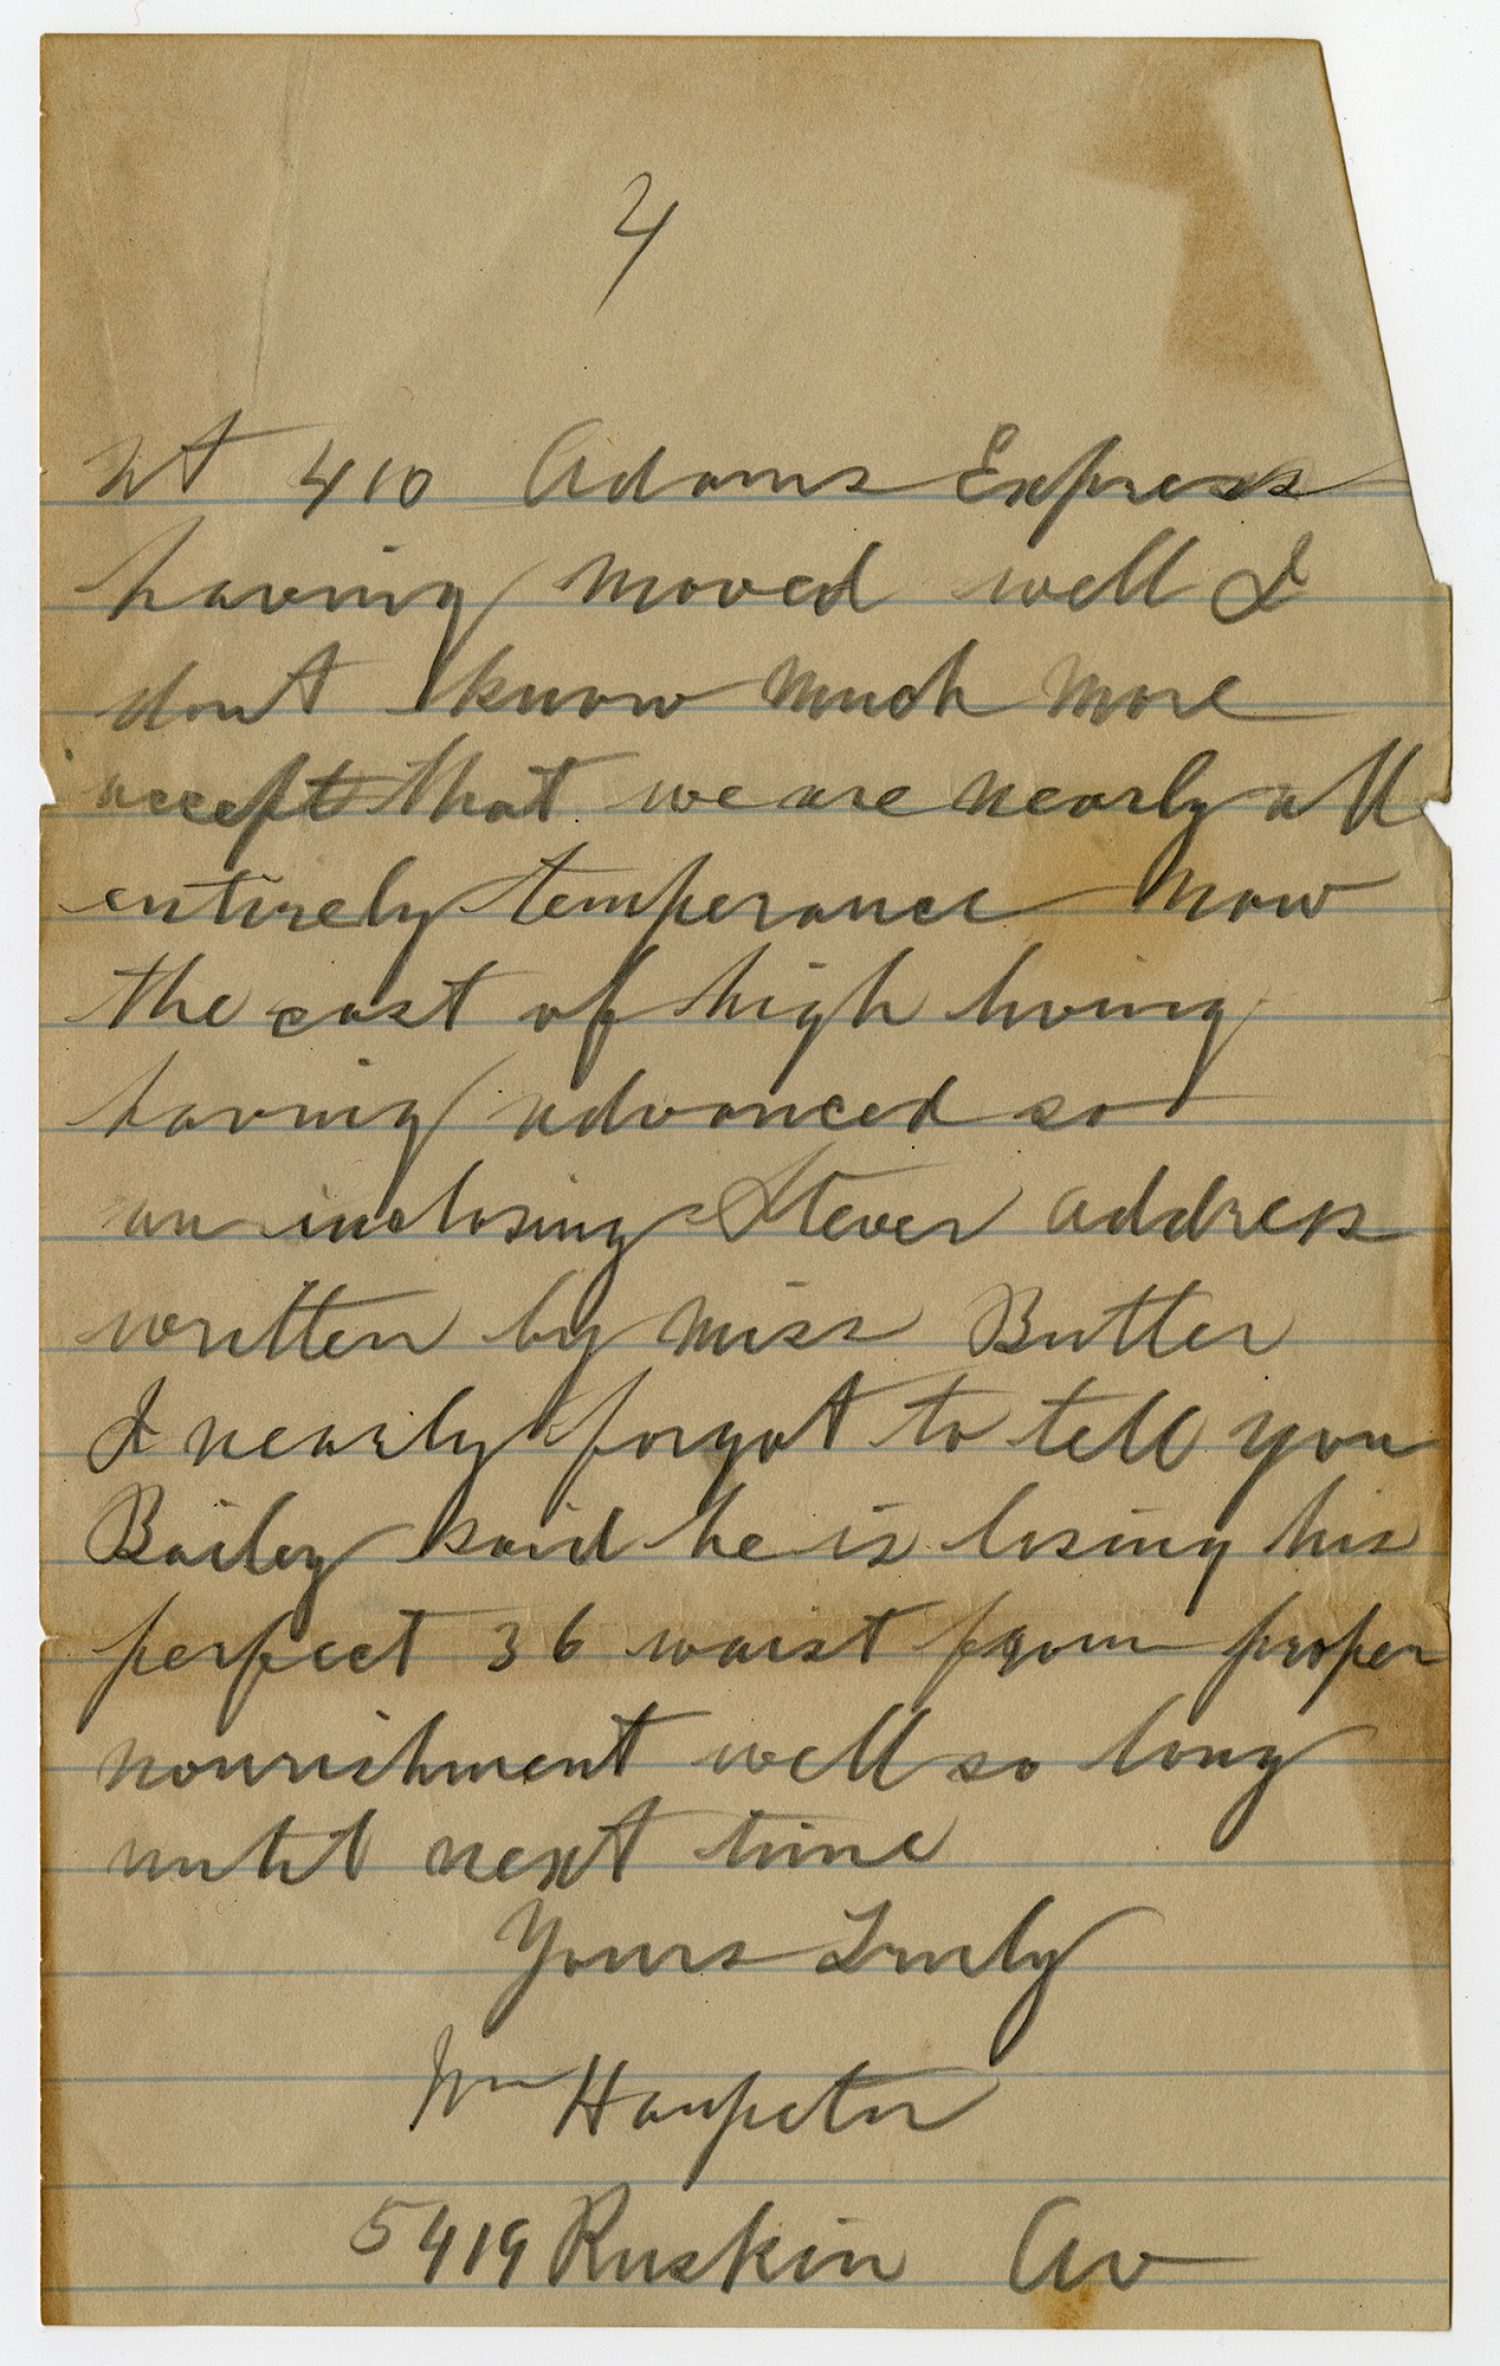 4
at 410 Adams Express
having moved well I
dont know much more
accept that we are nearly all
entirely temperance now
the cost of high living
having advanced so
am inclosing Steves address
written by Miss Butler
I nearly forgot to tell you
Bailey said he is losing his
perfect 36 waist from proper
nourishment well so long
until next time
Yours Truly
Wm Haupeter
5419 Ruskin Av